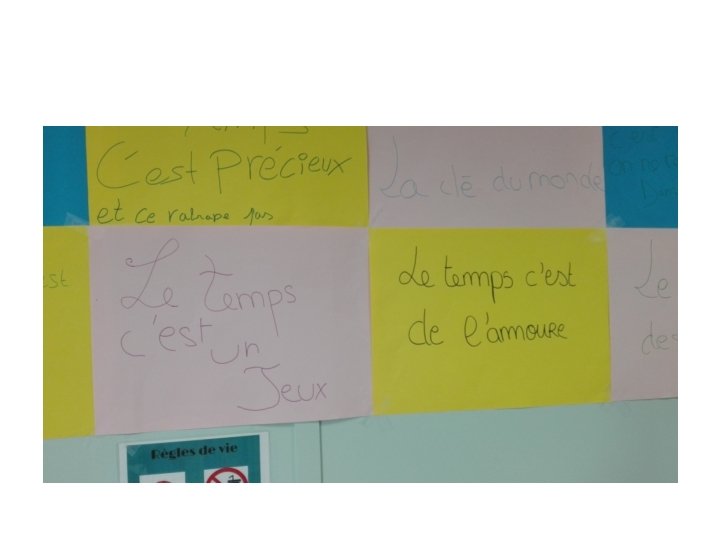 C'est Précieux
et ce ratrape pas
La clé du monde
Le temps
c'est
un
Jeux
Le temps c'est
de l'amoure
Le
des
Règles de vie